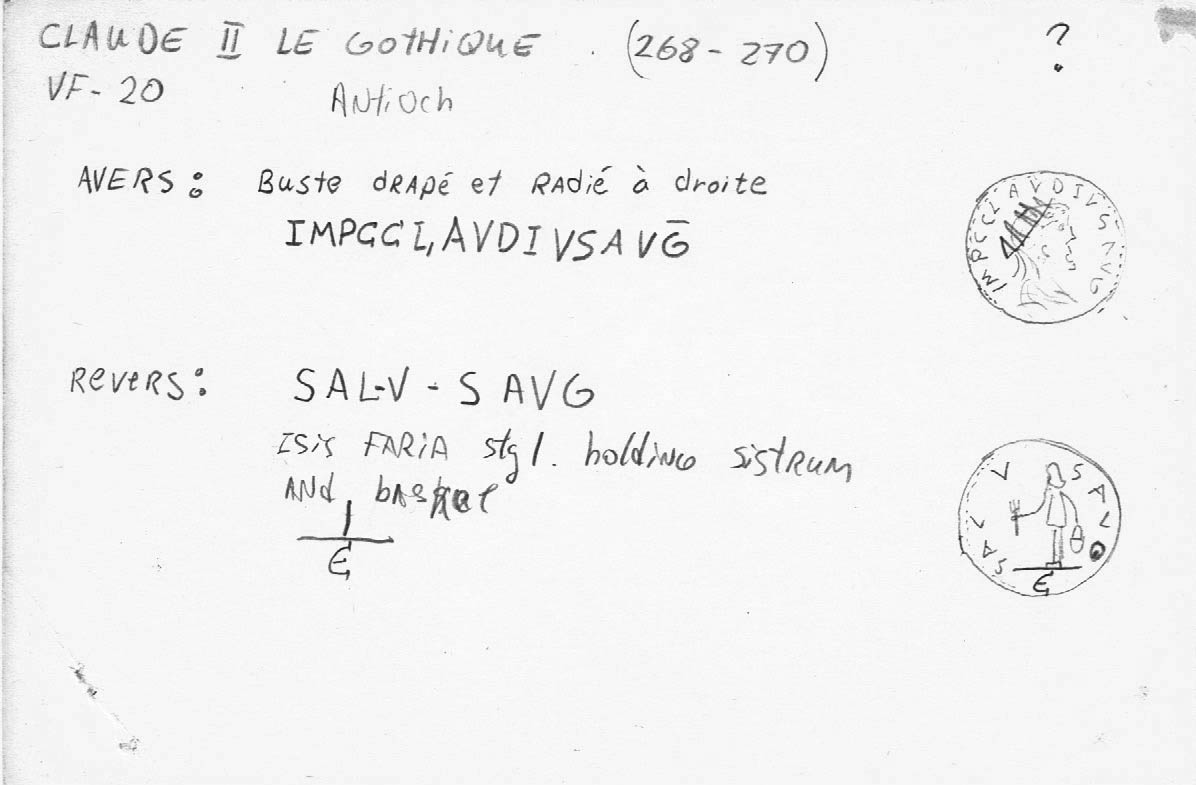 CLAUDE II LE GOTHIQUE . (268 - 270) ?
VF - 20 Antioch
AVERS : Buste dRApé et RAdié à droite
IMPCCLAVDIVSAVG
IMPCCLAVDIVSAVG
REVERS : SAL-V - S AVG
ISis FARiA stg l. holding sistRum
ANd basket
Є
SAL V SAVG
Є